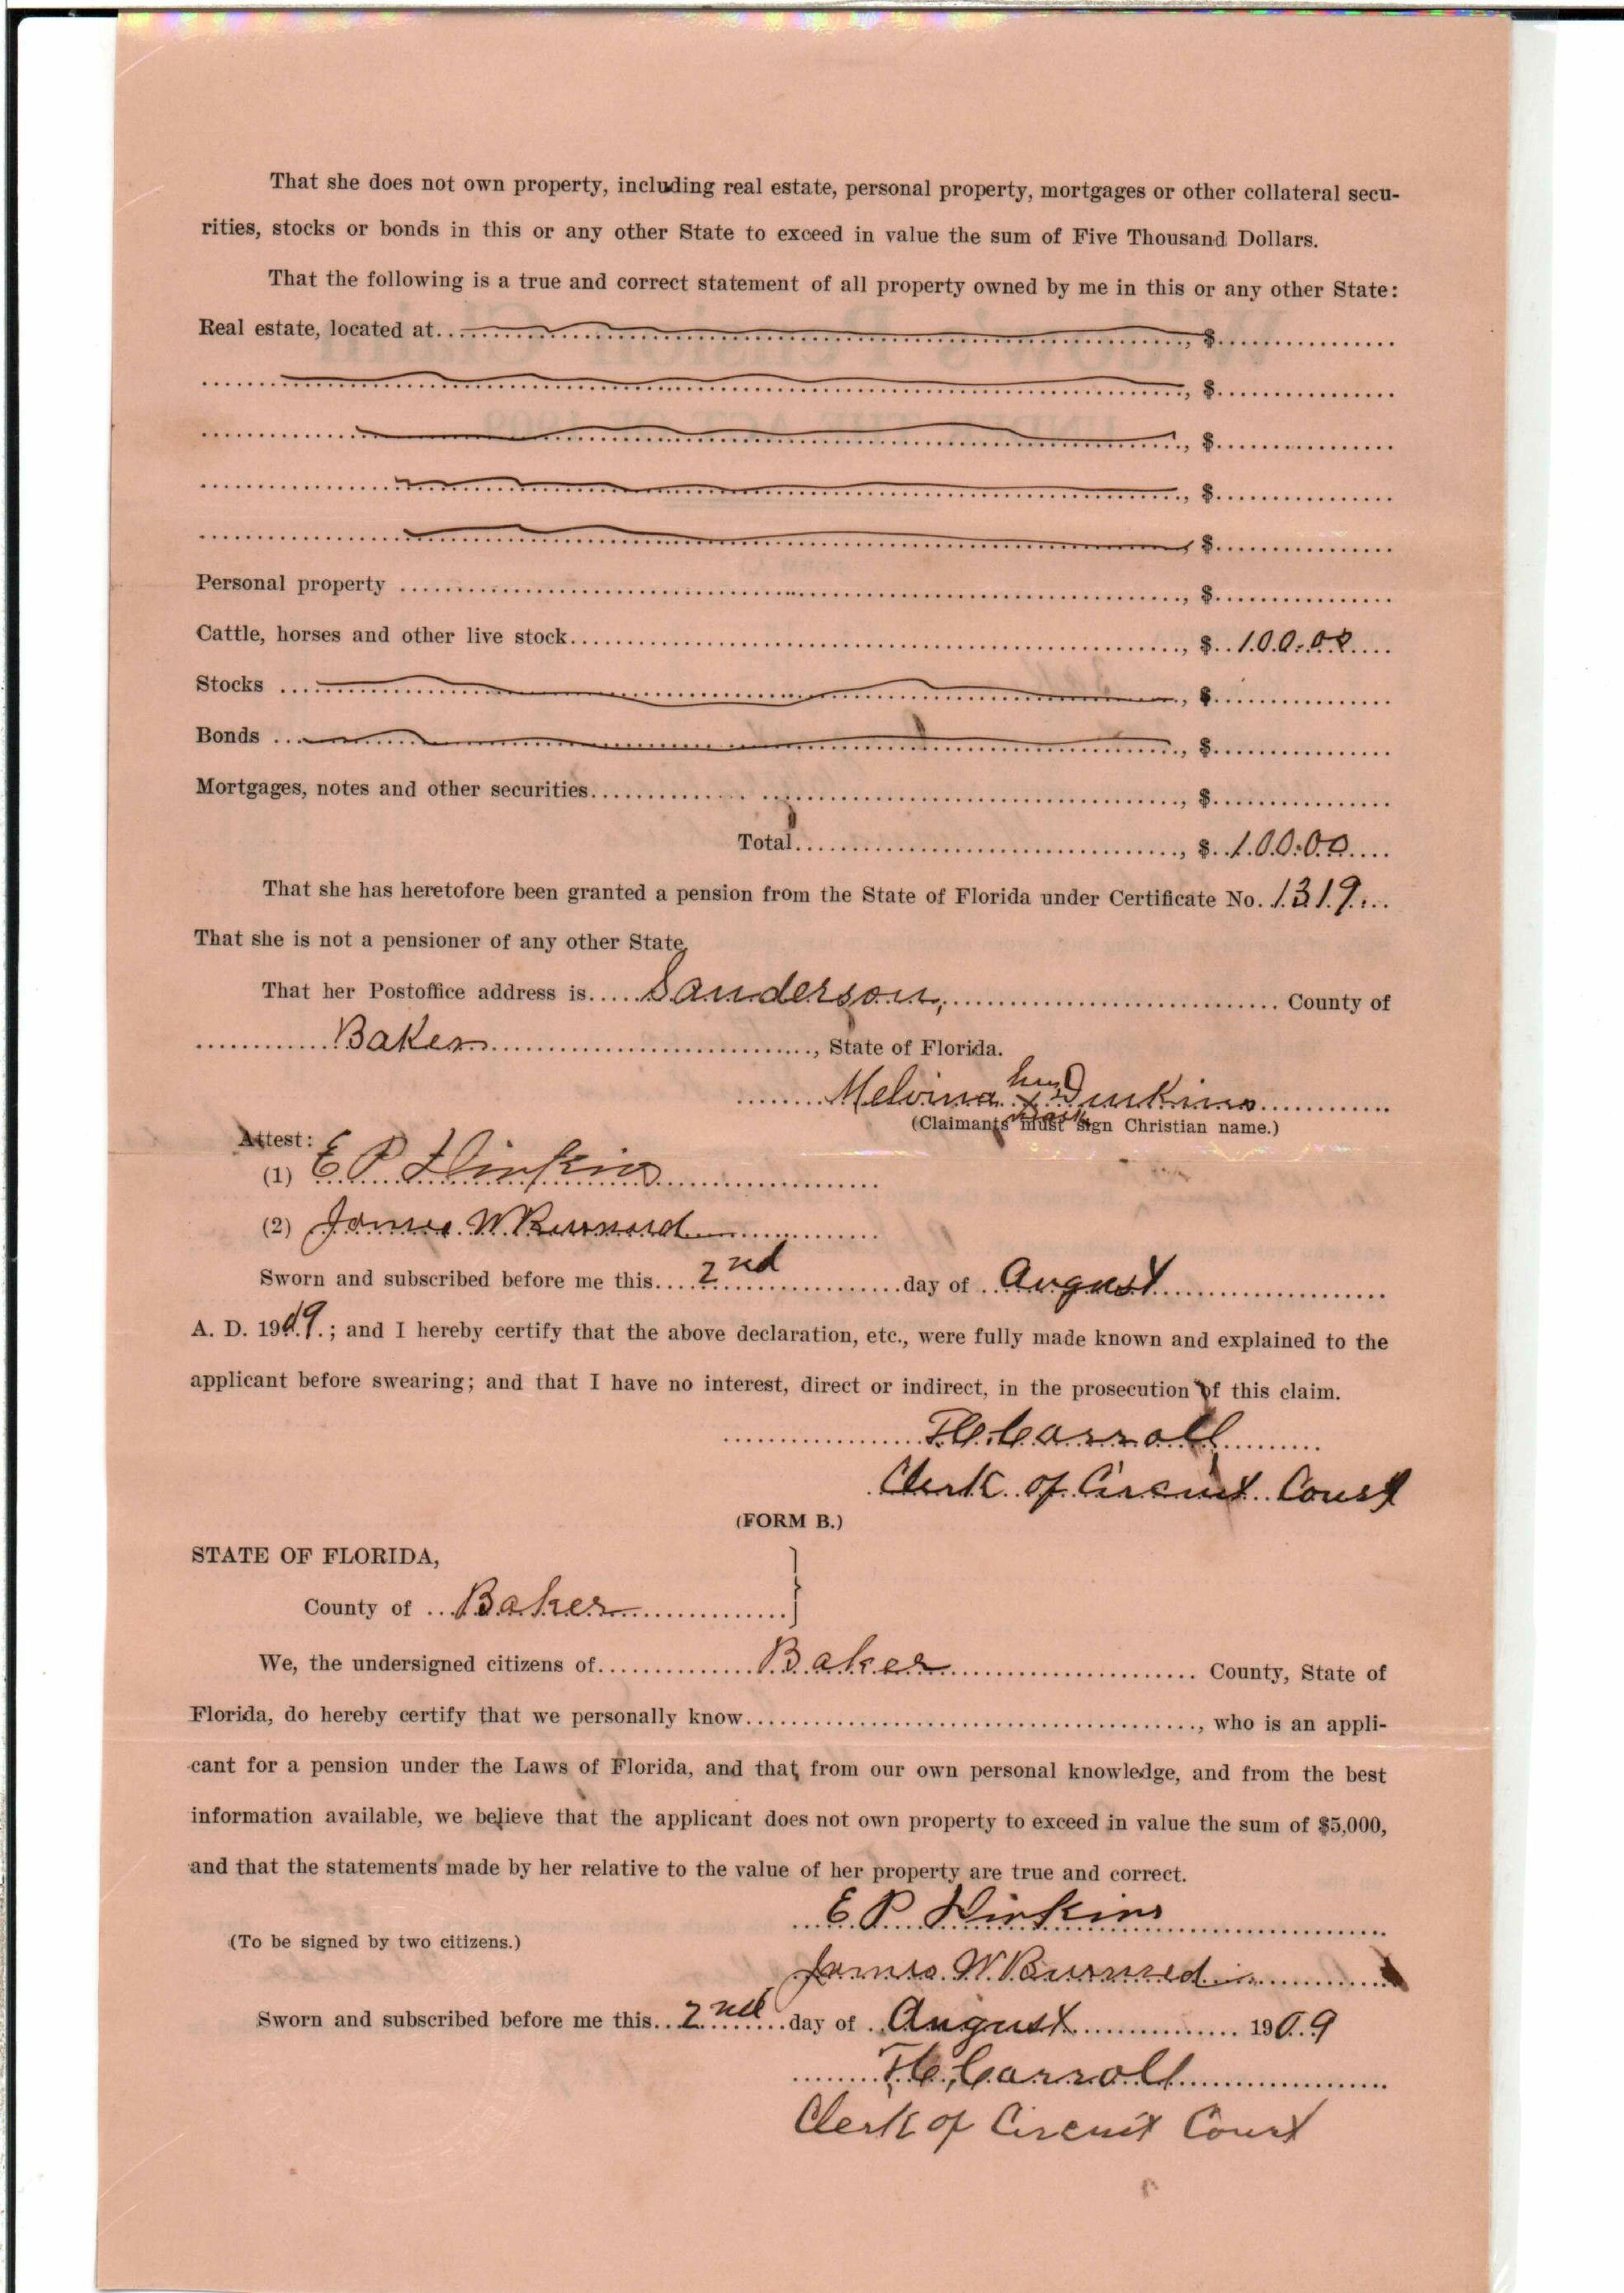 That she does not own property, including real estate, personal property, mortgages or other collateral secu-
rities, stocks or bonds in this or any other State to exceed in value the sum of Five Thousand Dollars.
That the following is a true and correct statement of all property owned by me in this or any other State:
Real estate, located at , $
, $
, $
, $
, $
Personal property , $
Cattle, horses and other live stock , $ 100.00
Stocks , $
Bonds , $
Mortgages, notes and other securities , $
Total , $ 100.00
That she has heretofore been granted a pension from the State of Florida under Certificate No. 1319
That she is not a pensioner of any other State
That her Postoffice address is Sanderson, County of
Baker , State of Florida.
her
Melvina x
mark
(Claimants must sign Christian name.)
Attest:
(1) E P
(2) James W
Sworn and subscribed before me this 2nd day of August
A. D. 1909 ; and I hereby certify that the above declaration, etc., were fully made known and explained to the
applicant before swearing; and that I have no interest, direct or indirect, in the prosecution of this claim.
Carroll
Clerk of Circuit Court
(FORM B.)
STATE OF FLORIDA,
County of Baker
We, the undersigned citizens of Baker County, State of
Florida, do hereby certify that we personally know , who is an appli-
cant for a pension under the Laws of Florida, and that, from our own personal knowledge, and from the best
information available, we believe that the applicant does not own property to exceed in value the sum of $5,000,
and that the statements made by her relative to the value of her property are true and correct.
E P
(To be signed by two citizens.)
James W Burnsed
Sworn and subscribed before me this 2nd day of August 1909
Carroll
Clerk of Circuit Court